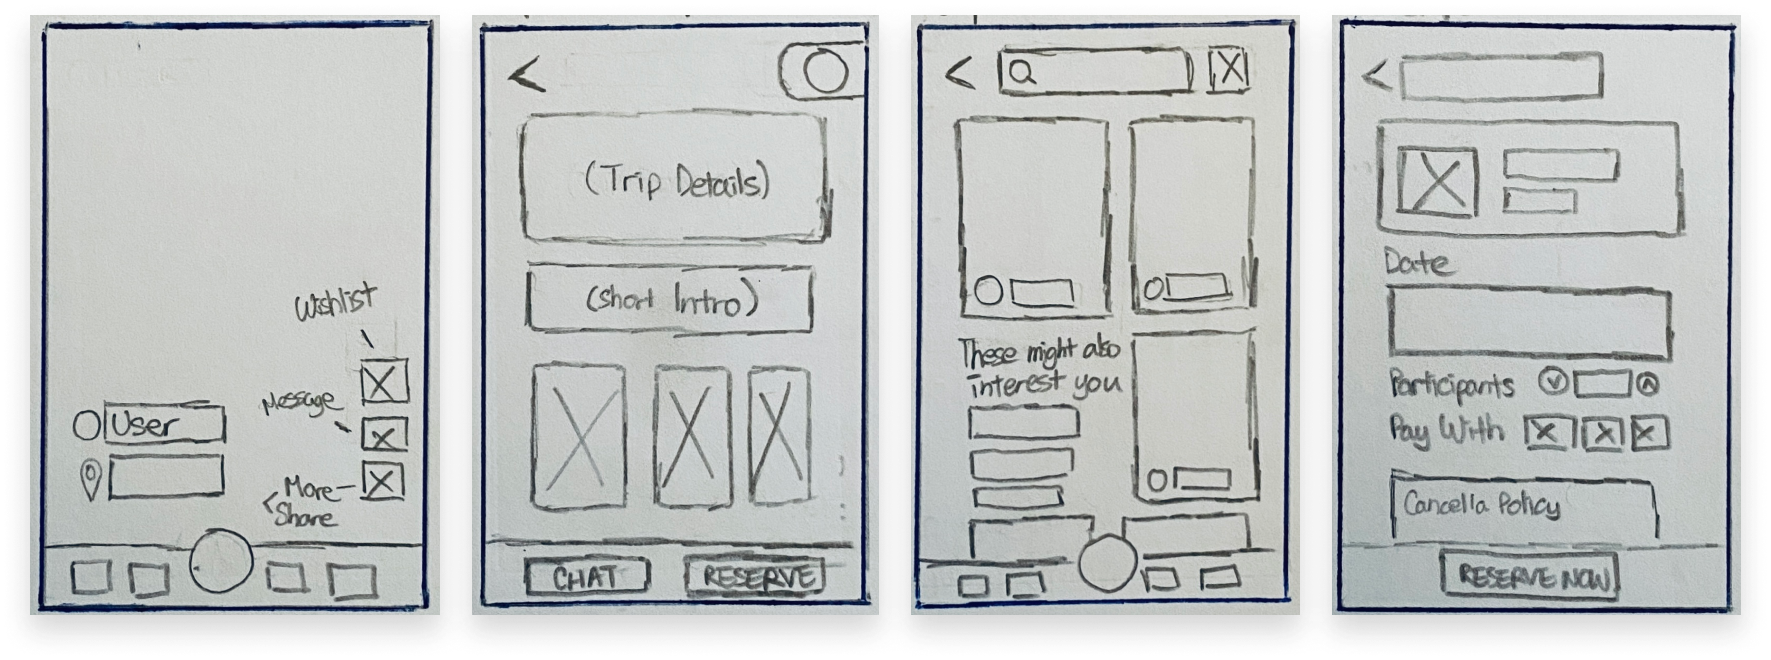 Wishlist
Message
User
More
Share
(Trip Details)
(Short Intro)
CHAT
RESERVE
These might also
interest you
Date
Participants
Pay With
Cancella Policy
RESERVE NOW